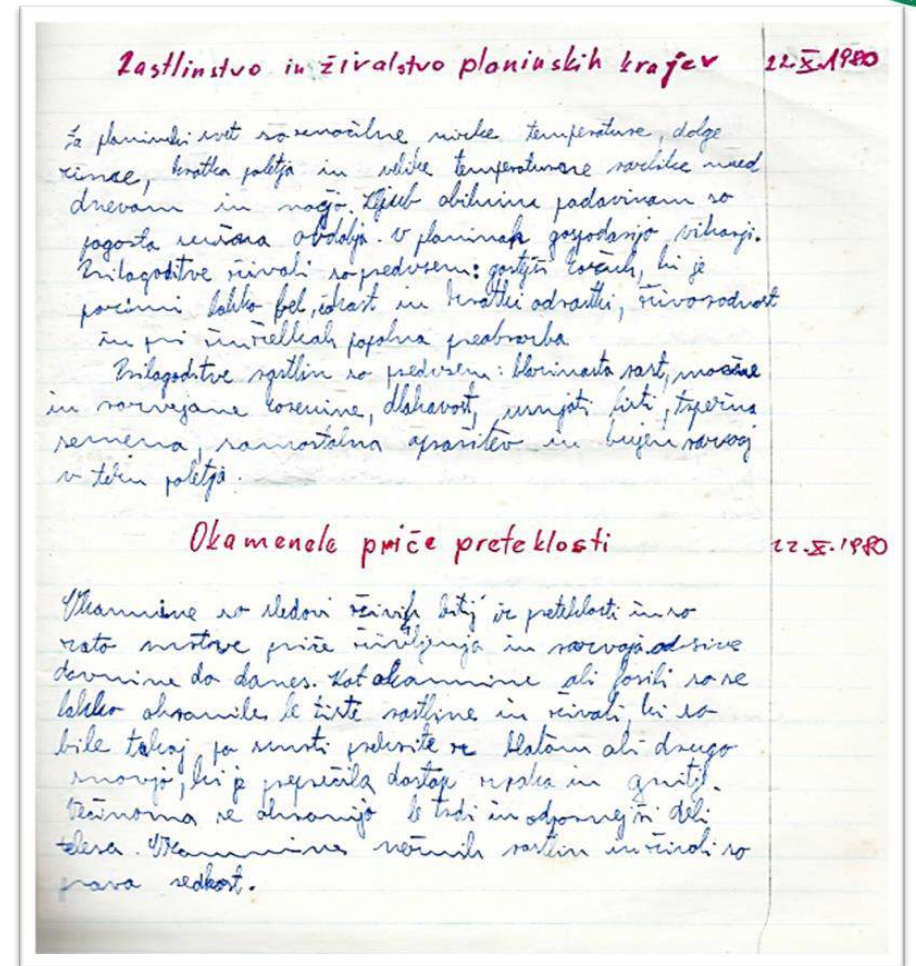 Rastlinstvo in živalstvo planinskih krajev 22.X.1980
Za planinski svet so značilne nizke temperature, dolge
zime, kratka poletja in velike temperaturne razlike med
dnevom in nočjo. Kljub obilnim padavinam so
pogosta sušna obdobja. V planinah gospodarijo viharji.
Prilagoditve živali so predvsem: gostejši kožuh, ki je
pozimi lahko bel, čokast in kratki odrastki, živorodnost
in pri žuželkah popolna preobrazba.
Prilagoditve rastlin so predvsem: blazinasta rast, močne
in razvejane korenine, dlakavost, usnjati listi, trpežna
semena, samostalna oprašitev in bujen razvoj
v teku poletja.
Okamenele priče preteklosti 22.X.1980
Okamnine so sledovi živih bitij iz preteklosti in so
zato mrtve priče življenja in razvoja od sive
davnine do danes. Kot okamnine ali fosili so se
lahko ohranile le tiste rastline in živali, ki so
bile takoj po smrti prekrite z blatom ali drugo
snovjo, ki je preprečila dostop zraka in gnitje.
Večinoma se ohranijo le trdi in odpornejši deli
telesa. Okamnine nežnih rastlin in živali so
prava redkost.